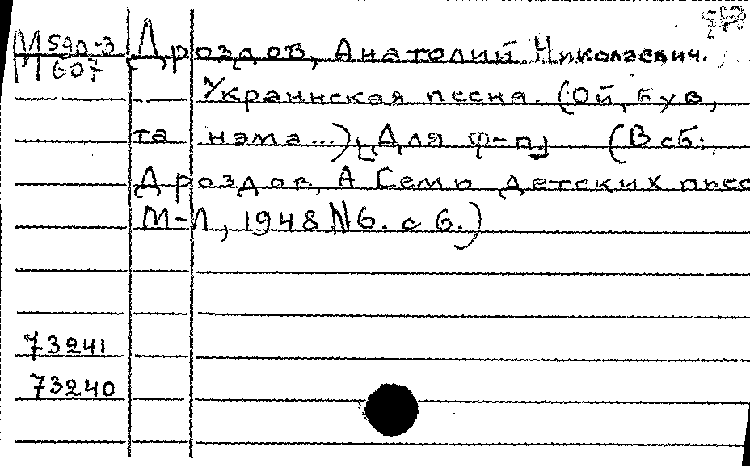 М 59п-3 Дроздов, Анатолий Николаевич.
М 607
Украинская песня. (Ой, був,
та нема...) [Для ф-п.] (В сб:
Дроздов, А Семь детских пьес
М-Л, 1948 N6. с 6.)
73241
73240